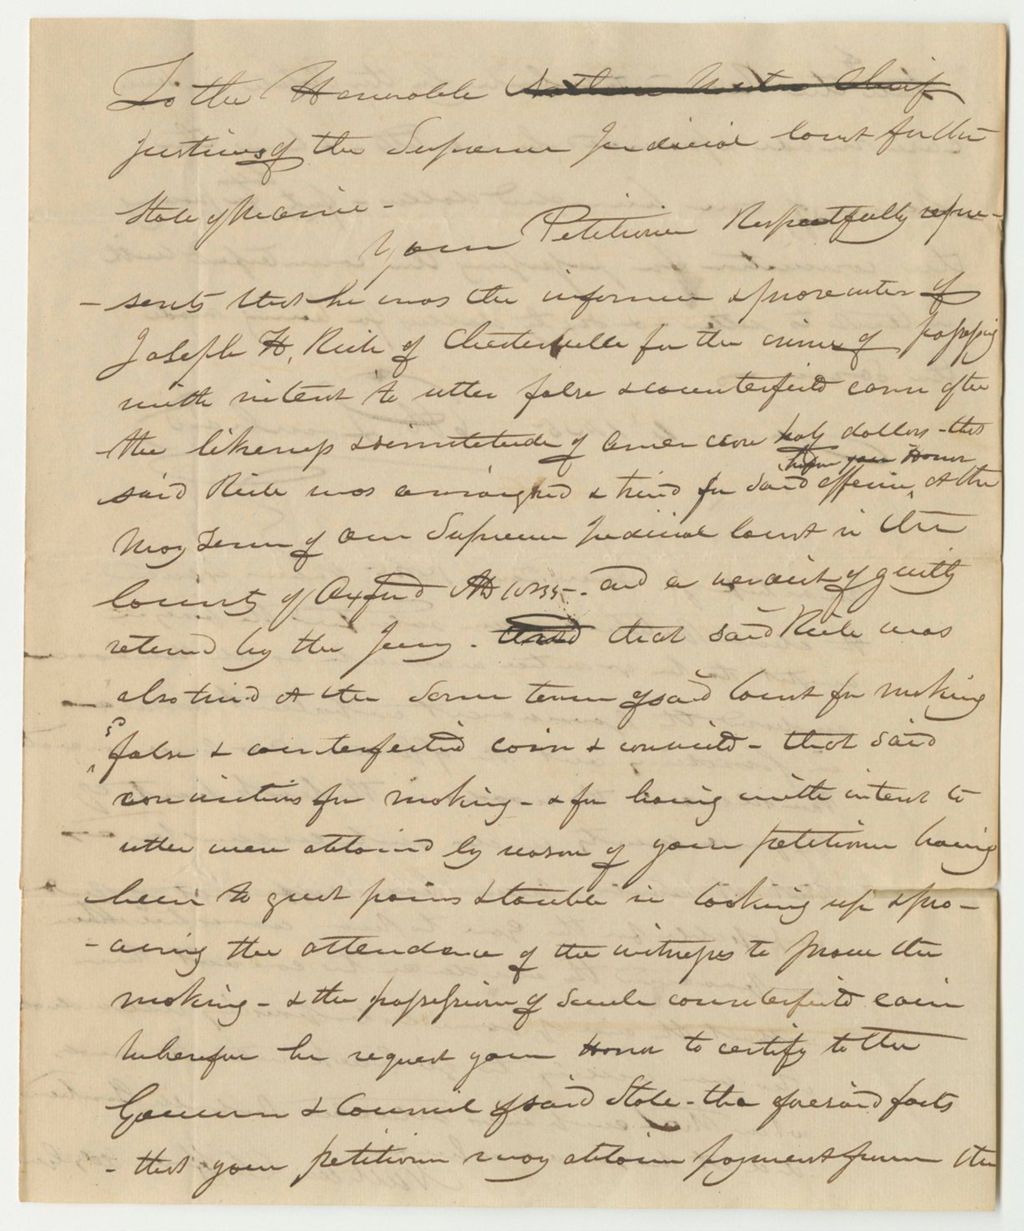 To the Honorable Nathan Weston Chief
Justices of the Supreme Judicial Court for the
State of Maine -
Your Petitioner Respectfully repre-
- sents that he was the informer & prosecutor of
Joseph H. Rich of Chesterville for the crime of possessing
with intent to utter false & counterfeited coin of the
the likeness & similitude of American half dollars - that
before your Honor
said Rich was arraigned & tried for said offence, At the
May Term of our Supreme Judicial Court in the
County of Oxford AD 1835 - and a verdict of guilty
returned by the Jury. that said Rich was
also tried at the same term of said Court for making
false & counterfeited coin & convicted - that said
convictions for making - & for having with intent to
utter were obtained by reason of your petitioner having
been to great pains & trouble in looking up & pro-
- curing the attendance of the witnesses to prove the
making - & the possession of such counterfeited coin
Wherefore he request your Honor to certify to the
Governor & Council of said State - the foresaid facts
- that your petitioner may obtain payment from the